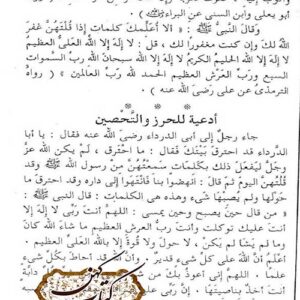 أبو يعلى وابن السنى عن البراء ) .
وقال النبي ﷺ : « ألا أعلمك كلمات إذا قلتهن غفر
الله لك وإن كنت مغفورا لك ، قل : لا إله إلا الله العلي العظيم
لا إله إلا الله الحليم الكريم لا إله إلا الله سبحان الله رب السموات
السبع ورب العرش العظيم الحمد لله رب العالمين » ( رواه
الترمذى عن على رضى الله عنه )
أدعية للحرز والتحصين
جاء رجل إلى أبي الدرداء رضي الله عنه فقال : يا أبا
الدرداء قد احترق بيتك فقال : ما احترق ، لم يكن الله عز
وجل ليفعل ذلك بكلمات سمعتهن من رسول الله ﷺ وقد
قلتهن اليوم ثم قال : انهضوا بنا فانتهوا إلى داره وقد احترق ما
حولها ولم يصبها شيء وهذه هي الكلمات : قال النبي ﷺ :
« من قال حين يصبح وحين يمسي : اللهم أنت ربي لا إله إلا
أنت عليك توكلت وأنت رب العرش العظيم ما شاء الله كان
وما لم يشأ لم يكن ، لا حول ولا قوة إلا بالله العلي العظيم .
أعلم أن الله على كل شيء قدير ، وأن الله قد أحاط بكل شيء
علما . اللهم إني أعوذ بك من دابة
أنت آخذ بناصيتها ،